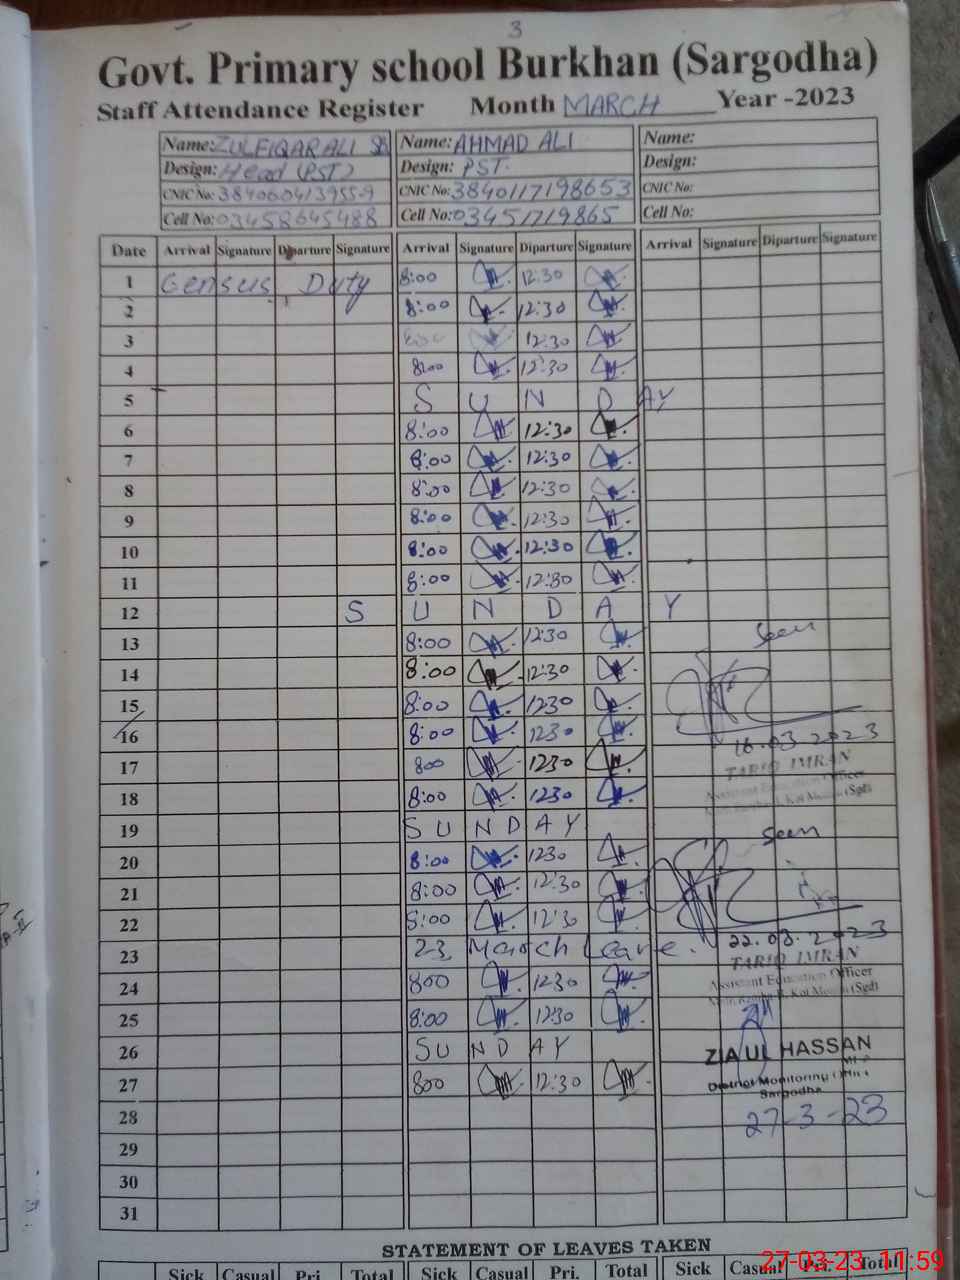 3
Govt. Primary school Burkhan (Sargodha)
Staff Attendance Register Month MARCH Year -2023
Name: ZULFIQAR ALI Name: AHMAD ALI Name:
Design: Head (PST) Design: PST. Design:
CNIC No: 3840604139559 CNIC No: 3840117198653 CNIC No:
Cell No: 03458645488 Cell No: 03451719865 Cell No:
Date Arrival Signature Diparture Signature Arrival Signature Diparture Signature Arrival Signature Diparture Signature
1 Census Duty 8:00 12:30
2 8:00 12:30
3 12:30
4 8:00 12:30
5 S U N D AY
6 8:00 12:30
7 8:00 12:30
8 8:00 12:30
9 8:00 12:30
10 8:00 12:30
11 8:00 12:30
12 S U N D A Y
13 8:00 12:30 Seen
14 8:00 12:30
15 8:00 1230
16 8:00 1230 16.03.2023
17 800 1230 TARIQ IMRAN
18 8:00 1230 Assistant Education Officer
19 S U N D A Y
20 8:00 1230 Seen
21 8:00 12:30
22 8:00 12:30
23 23 March Leave. 22.03.2023
24 800 1230 TARIQ IMRAN
Assistant Education Officer
25 8:00 12:30
26 SU N D A Y ZIA UL HASSAN
27 800 12:30 District Monitoring Officer
Sargodha
28 27-3-23
29
30
31
STATEMENT OF LEAVES TAKEN
Sick Casual Pri. Total Sick Casual Pri. Total Sick Casual Pri. Total
27-03-23 11:59